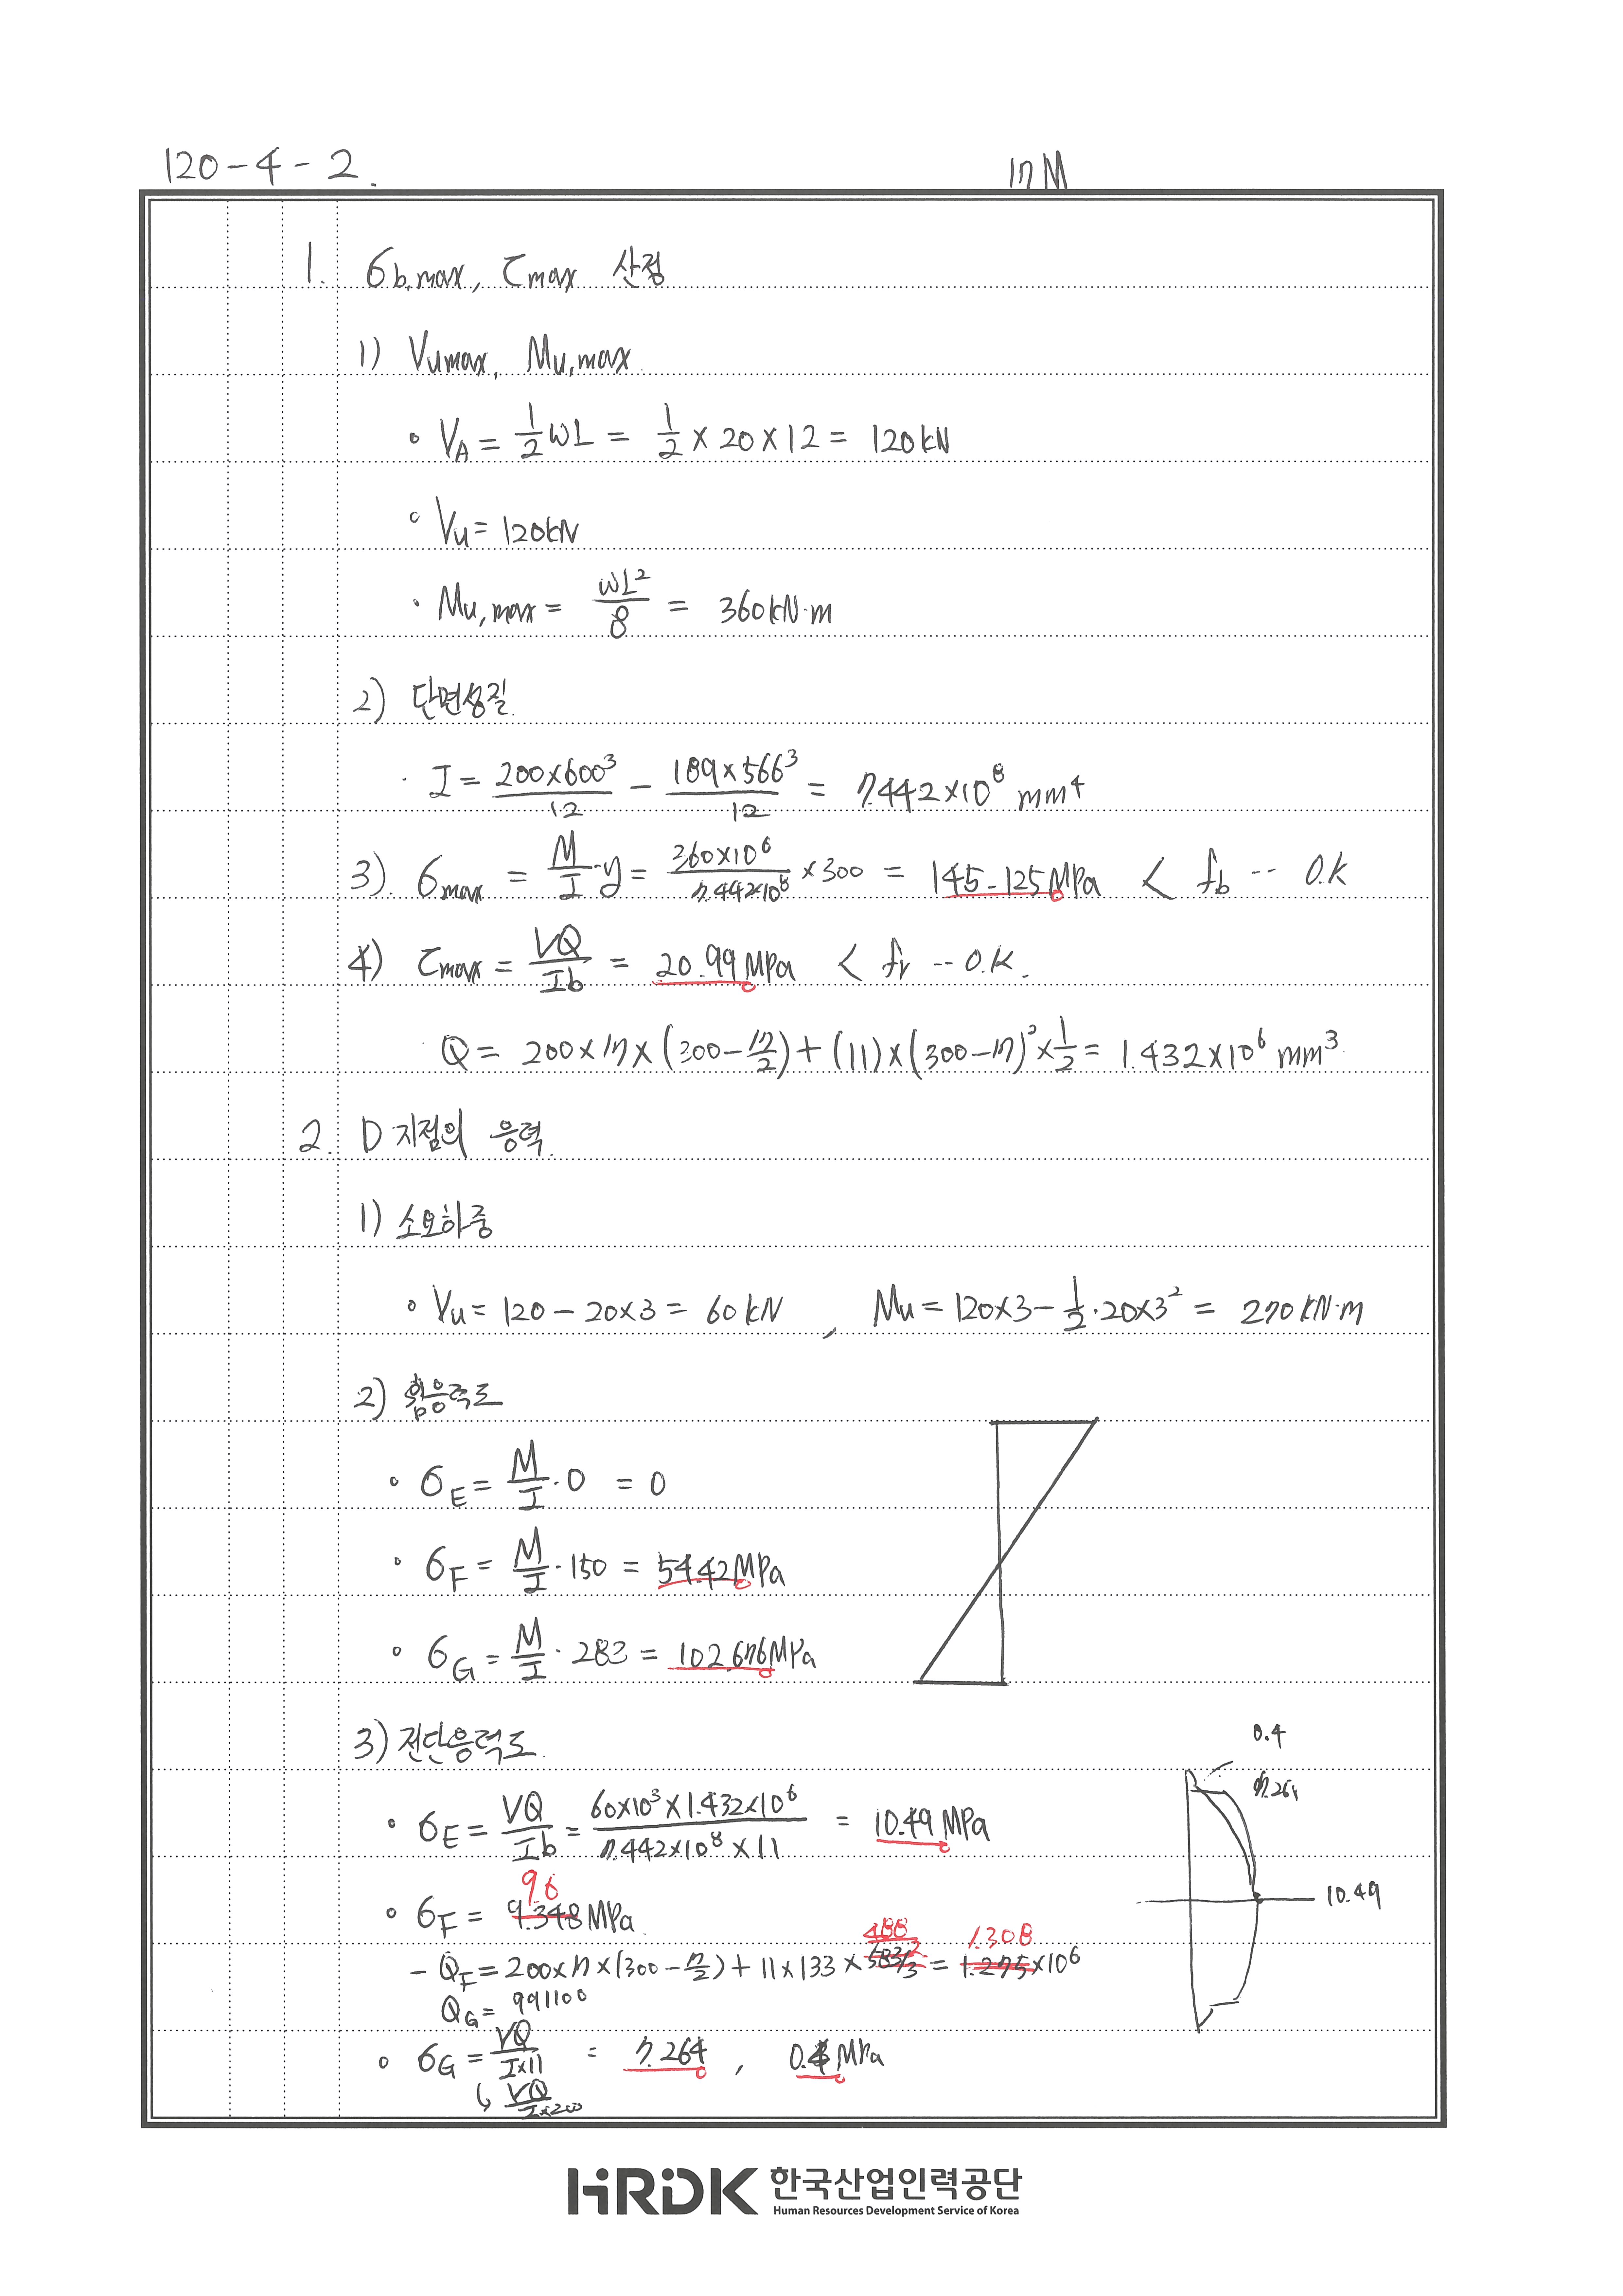 120-4-2.
17M
1. σb,max, τmax 산정
1) Vumax, Mu,max
∘ VA = 1/2 wL = 1/2 × 20 × 12 = 120kN
∘ Vu = 120kN
· Mu,max = wL²/8 = 360kN·m
2) 단면성질
· I = 200×600³/12 - 189×566³/12 = 7.442×10⁸ mm⁴
3). σmax = M/I·y = 360×10⁶/7.442×10⁸ × 300 = 145.125MPa < fb -- O.K
4) τmax = VQ/Ib = 20.99MPa < fv -- O.K.
· Q = 200×17×(300-17/2)+(11)×(300-17)²×1/2 = 1.432×10⁶ mm³
2. D 지점의 응력.
1) 소요하중
∘ Vu = 120 - 20×3 = 60kN , Mu = 120×3 - 1/2·20×3² = 270kN·m
2) 휨응력도
∘ σE = M/I·0 = 0
∘ σF = M/I·150 = 54.42MPa
∘ σG = M/I·283 = 102.676MPa
3) 전단응력도.
0.4
7.264
∘ σE = VQ/Ib = 60×10³×1.432×10⁶/7.442×10⁸×11 = 10.49MPa
10.49
9.6
∘ σF = 9.348MPa
488
1.308
- QF = 200×17×(300-17/2)+11×133× = 1.275×10⁶
QG = 991100
∘ σG = VQ/I×11 = 7.264 , 0.4MPa
↳ VQ/I×200
HRDK 한국산업인력공단
Human Resources Development Service of Korea